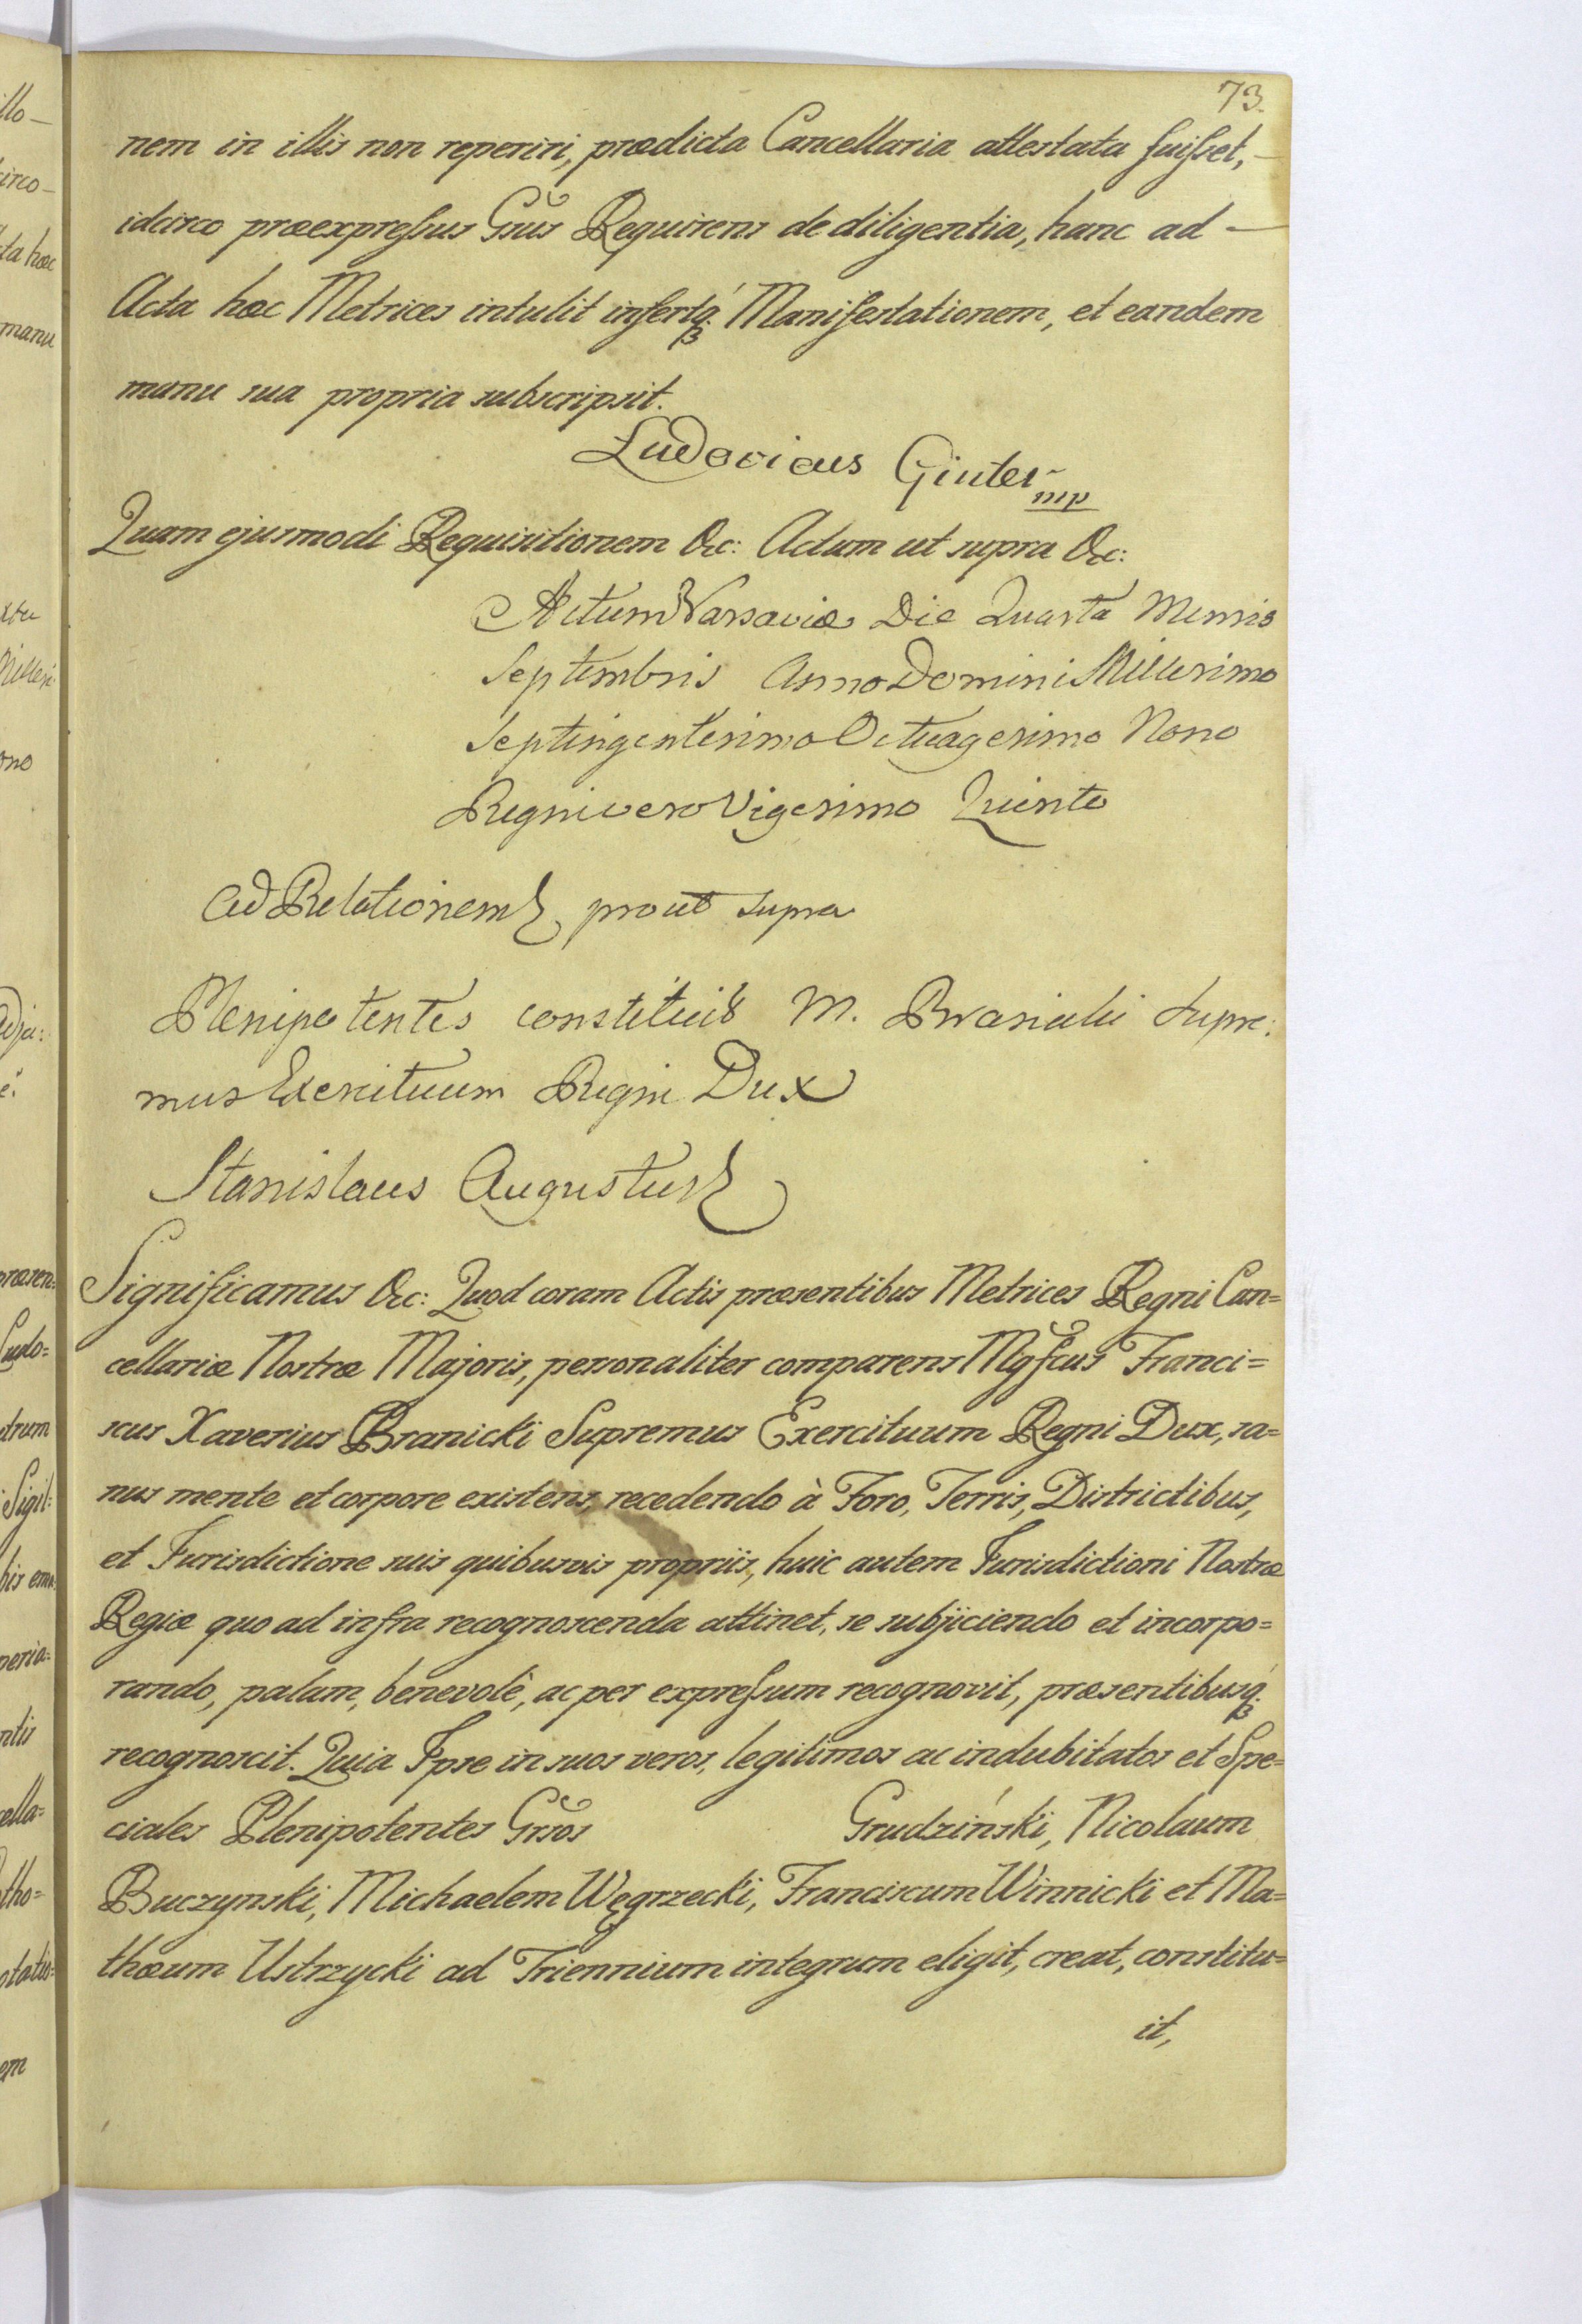 73.
nem in illis non reperiri, prædicta Cancellaria attestata fuisset, —
idcirco præexpressus Gsus Requirens de diligentia, hanc ad —
Acta hæc Metrices intulit infertq́ꝫ Manifestationem, et eandem
manu sua propria subscripsit.
Ludovicus Giuter mp
Quam ejusmodi Requisitionem &c: Actum ut supra &c:
Actum Varsaviæ Die Quarta Mensis
Septembris Anno Domini Millesimo
Septingentesimo Octuagesimo Nono
Regni vero Vigesimo Quinto
Ad Relationem prout supra
Plenipotentes constituit M. Branicki Supre:
mus Exercituum Regni Dux
Stanislaus Augustus
Significamus &c: Quod coram Actis præsentibus Metrices Regni Can=
cellariæ Nostræ Majoris, personaliter comparens Mgfcus Franci=
scus Xaverius Branicki Supremus Exercituum Regni Dux, sa=
nus mente et corpore existens, recedendo à Foro, Terris, Districtibus,
et Jurisdictione suis quibusvis propriis, huic autem Jurisdictioni Nostræ
Regiæ quo ad infra recognoscenda attinet, se subjiciendo et incorpo=
rando, palam, benevolè, ac per expressum recognovit, præsentibusq́ꝫ
recognoscit. Quia Ipse in suos veros, legitimos ac indubitatos et Spe=
ciales Plenipotentes Grsos Grudziński, Nicolaum
Buczynski, Michaelem Węgrzecki, Franciscum Winnicki et Ma=
thæum Ustrzycki ad Triennium integrum eligit, creat, constitu=
it,